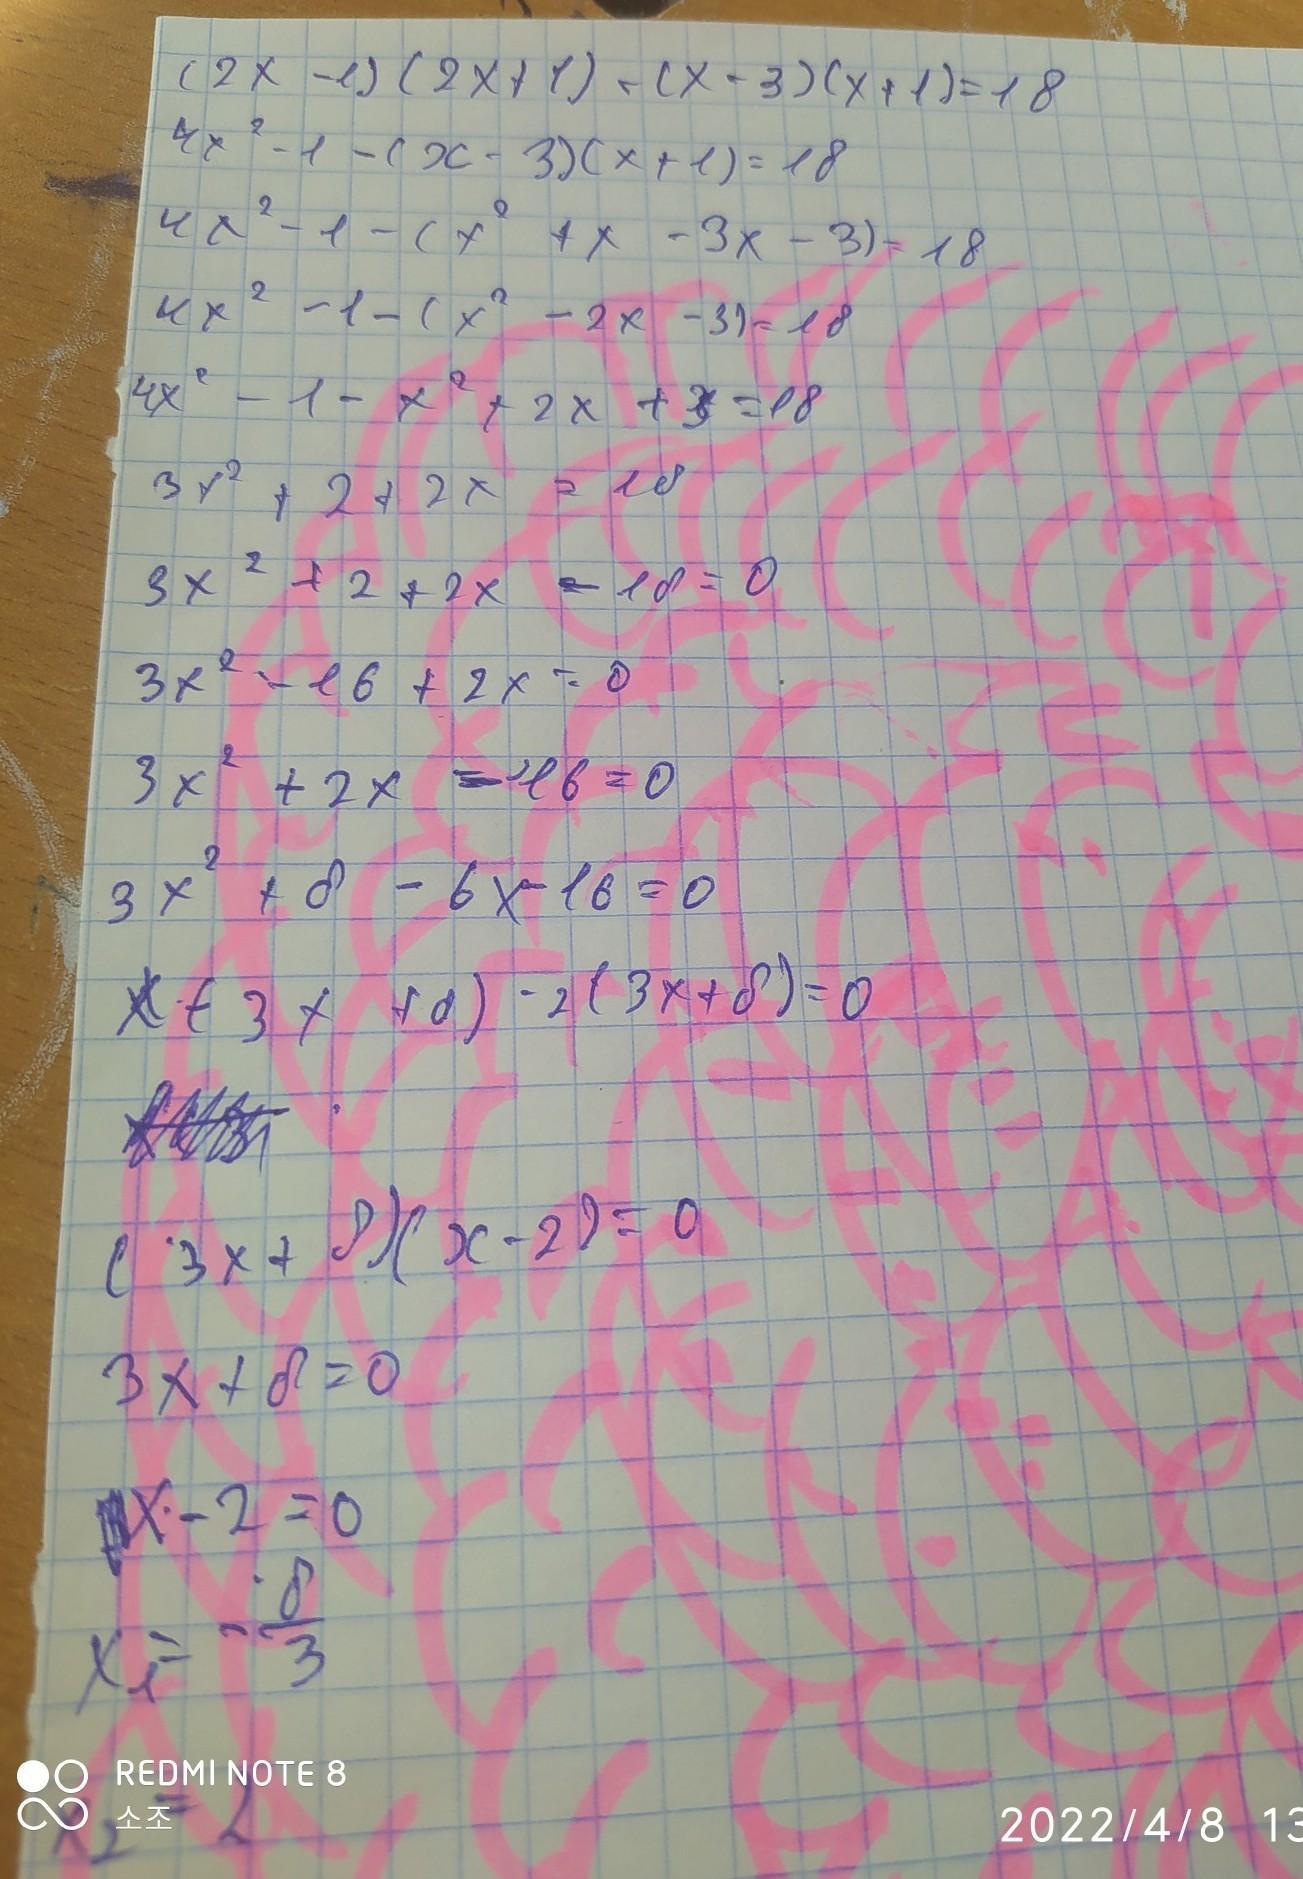 (2x - 1)(2x + 1) - (x - 3)(x + 1) = 18
4x² - 1 - (x - 3)(x + 1) = 18
4x² - 1 - (x² + x - 3x - 3) = 18
4x² - 1 - (x² - 2x - 3) = 18
4x² - 1 - x² + 2x + 3 = 18
3x² + 2 + 2x = 18
3x² + 2 + 2x - 18 = 0
3x² - 16 + 2x = 0
3x² + 2x - 16 = 0
3x² + 8 - 6x - 16 = 0
x · (3x + 8) - 2(3x + 8) = 0
(3x + 8)(x - 2) = 0
3x + 8 = 0
x - 2 = 0
x₁ = - 8/3
x₂ = 2
REDMI NOTE 8
소조
2022/4/8 13